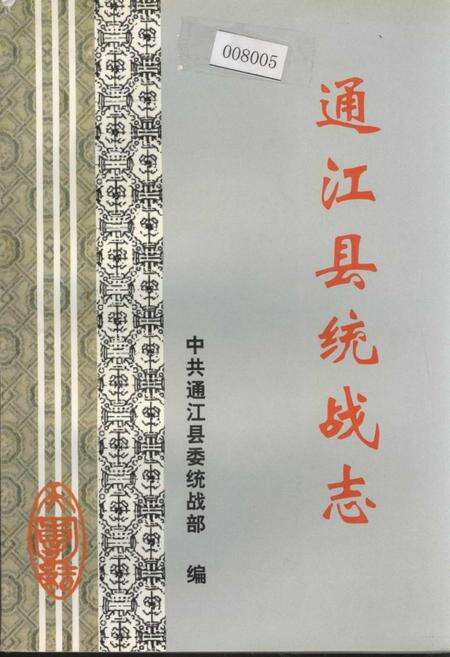 008005
通江县统战志
中共通江县委统战部 编